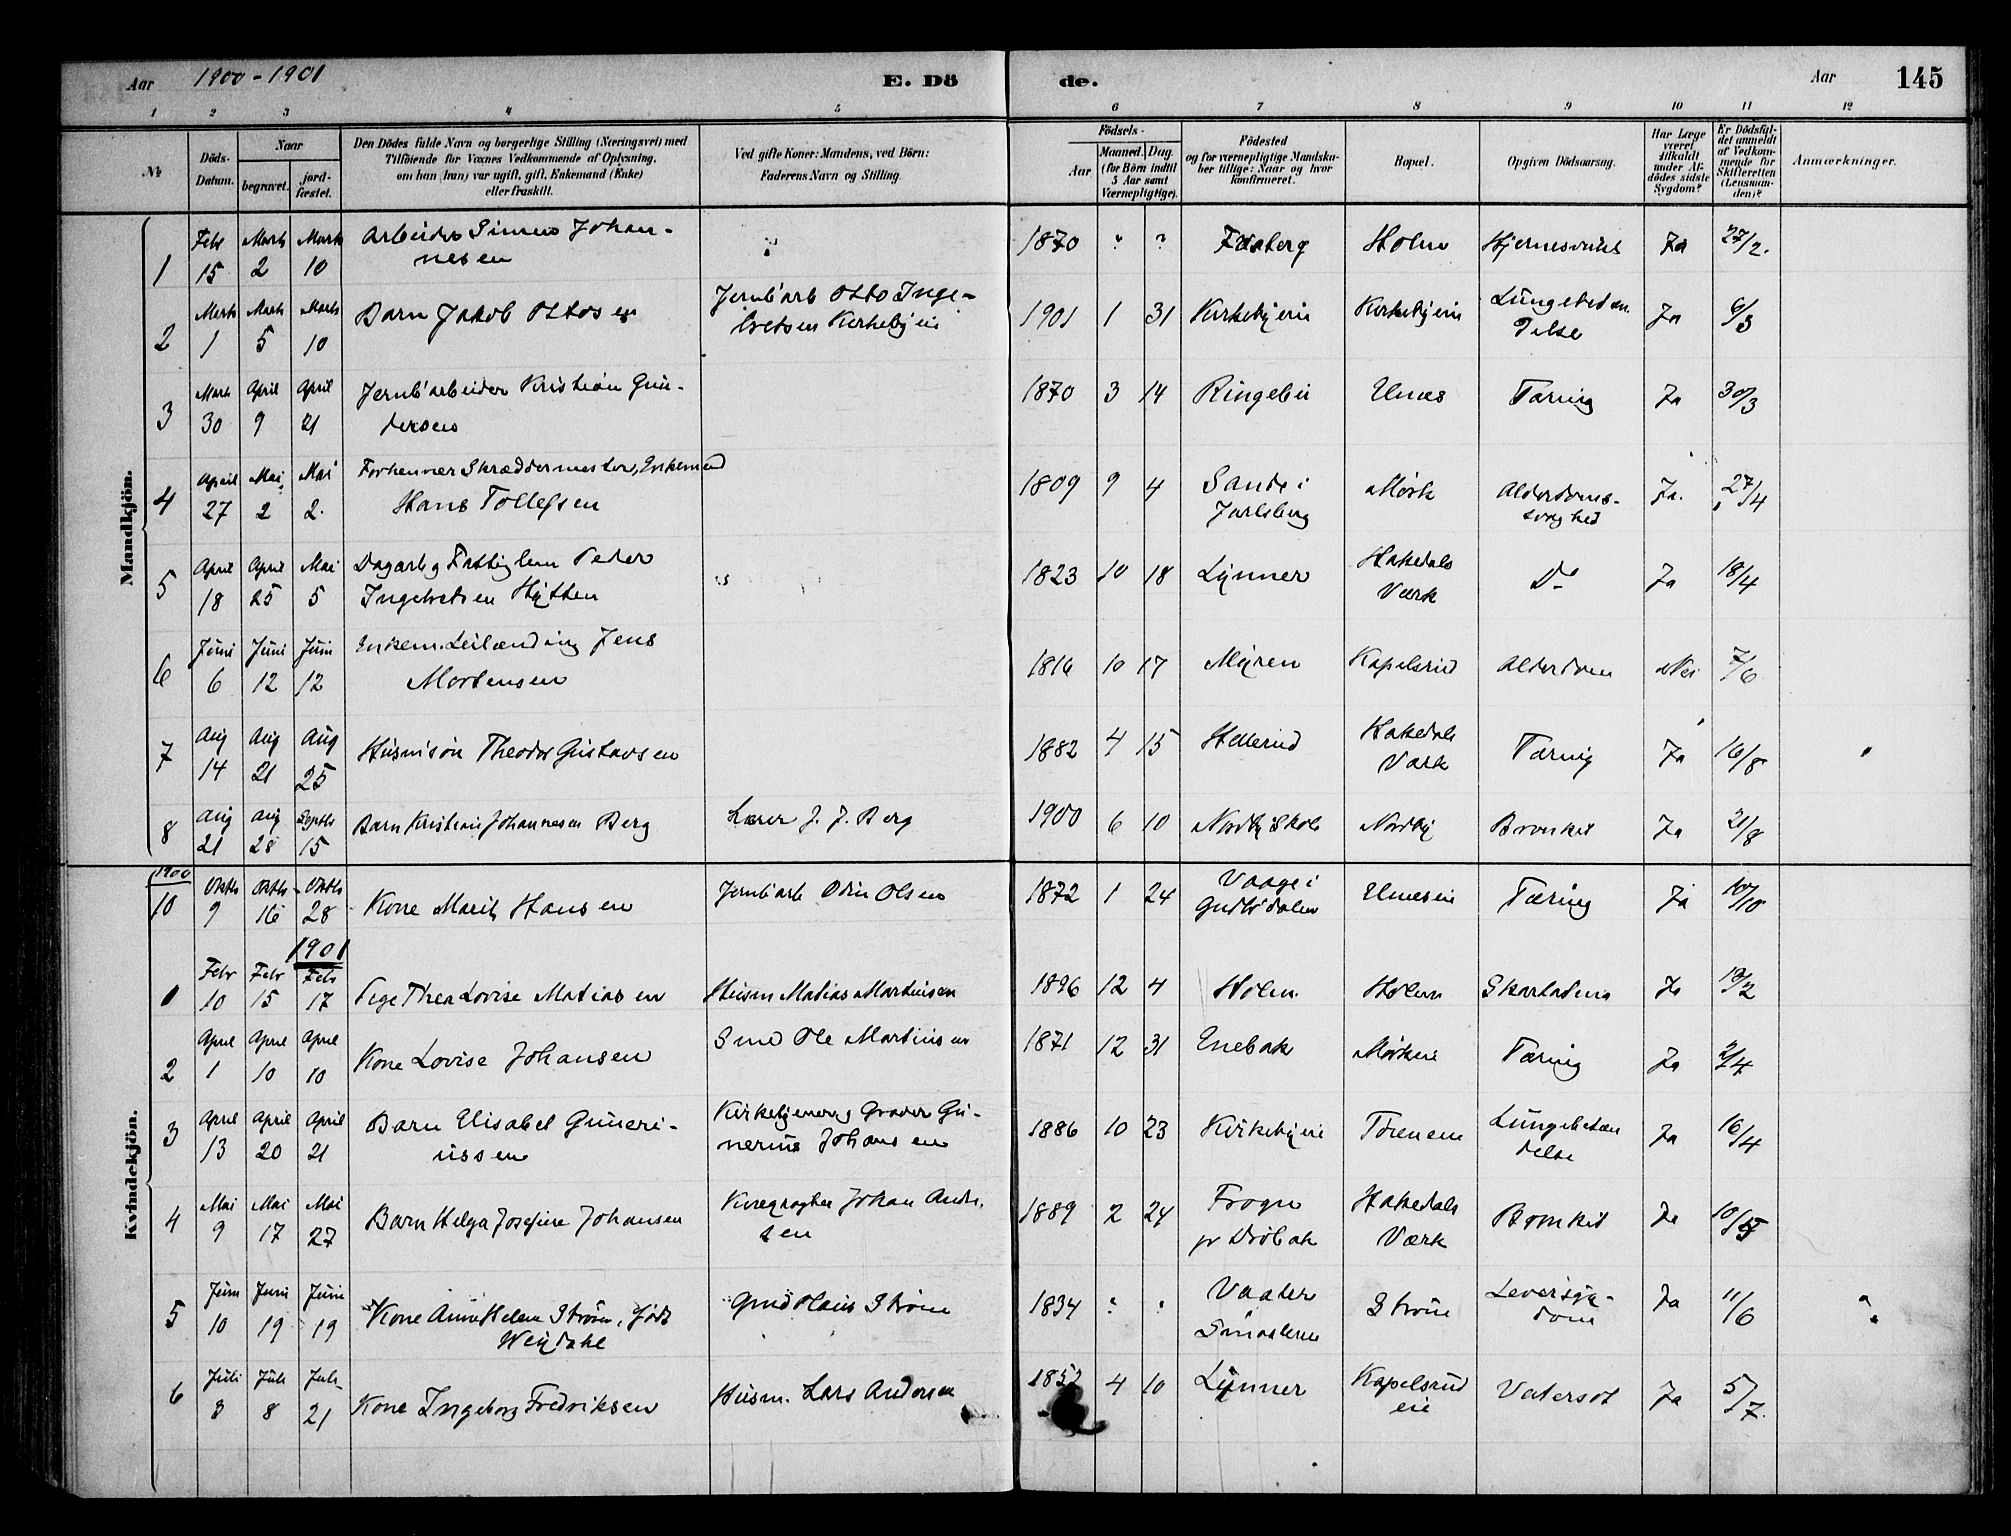 Aar 1900-1901 E. Dö de. Aar 145
1 2 3 4 5 6 7 8 9 10 11 12
№ Döds-Datum. Naar begravet. jordfæstet.
Den Dödes fulde Navn og borgerlige Stilling (Næringsvei) med
Tilföiende for Voxnes Vedkommende af Oplysning,
om han (hun) var ugift, gift, Enkemand (Enke)
eller fraskilt.
Ved gifte Koner: Mandens, ved Börn:
Faderens Navn og Stilling.
Födsels-
Aar Maaned. Dag.
(for Börn indtil
5 Aar samt
Værnepligtige).
Födested
og for værnepligtige Mandska-
ber tillige: Naar og hvor
konfirmeret.
Bopæl.
Opgiven Dödsaarsag.
Har Læge
været
tilkaldt
under Af-
dödes sidste
Sygdom?
Er Dödsfal-
det anmeldt
af Vedkom-
mende for
Skifteretten
(Lensman-
den)?
Anmærkninger.
Mandkjön.
1 Febr 15 Marts 2 Marts 10 Arbeider Simen Johan-
nesen 1870 ? ? Holm Ja 27/2.
2 Marts 1 Marts 5 Marts 10 Barn Jakob Ottosen Jernb'arb Otto Inge-
bretsen Kirkebyeie 1901 1 31 Kirkebyeie Kirkebyeie Lungebetæn
delse Ja 6/3
3 Marts 30 April 9 April 21 Jernb'arbeider Kristian Gun-
dersen 1870 3 14 Ringebu Unæs Tæring Ja 30/3
4 April 27 Mai 2 Mai 2. Forhenvær Skræddermester, Enkemand
Hans Tollefsen 1809 9 4 Sande i
Jarlsberg Mörk Alderdoms-
svaghed Ja. 27/4
5 April 18 April 25 Mai 5 Dagarb og Fattiglem Peder
Ingebretsen Hytten 1823 10 18 Lynner Hakedals
Værk Do Ja 18/4
6 Juni 6 Juni 12 Juni 12 Enkem. Leilænding Jens
Mortensen 1816 10 17 Myren Kapelsrud Alderdom Nei 7/6
7 Aug 14 Aug 21 Aug 25 Husm.sön Theodor Gustavsen 1882 4 15 Hellerud Hakedals
Værk Tæring Ja 16/8
8 Aug 21 Aug 28 Septbr 15 Barn Kristian Johannesen Berg Lærer J. J. Berg 1900 6 10 Nordby Skole Nordby Bronkit Ja 21/8
Kvindekjön.
1900
10 Oktbr 9 Oktbr 16 Oktbr 28 Kone Marit Hansen Jernb'arb Odin Olsen 1872 1 24 Vaage i
Gudb'dalen Unæseie Tæring Ja 10/10
1901
1 Febr 10 Febr 15 Febr 17 Pige Thea Lovise Matiasen Husm Matias Martinsen 1896 12 4 Holm Holm Ja 12/2
2 April 1 April 10 April 10 Kone Lovise Johansen Smed Ole Martinsen 1871 12 31 Enebak Mörkeie Tæring Ja 2/4
3 April 13 April 20 April 21 Barn Elisabet Guneri-
ussen Kirketjener og Graver Gu-
nerius Johansen 1886 10 23 Kirkebyeie Lungebetæn
delse Ja 16/4
4 Mai 9 Mai 17 Mai 27 Barn Helga Josefine Johansen Johan Andr.
sen 1889 2 24 Frogn
pr Dröbak Hakedals
Værk Bronkit Ja 10/5
5 Juni 10 Juni 19 Juni 19 Kone Anne Helene Ström, födt
Weydahl Hans Ström 1834 ? ? Vaaler
Smaalene Ström Leversyg-
dom Ja 11/6
6 Juli 3 Juli 8 Juli 21 Kone Ingeborg Fredriksen Husm. Lars Andersen 4 10 Lynner Kapelsrud
eie Vatersot Ja 5/7.